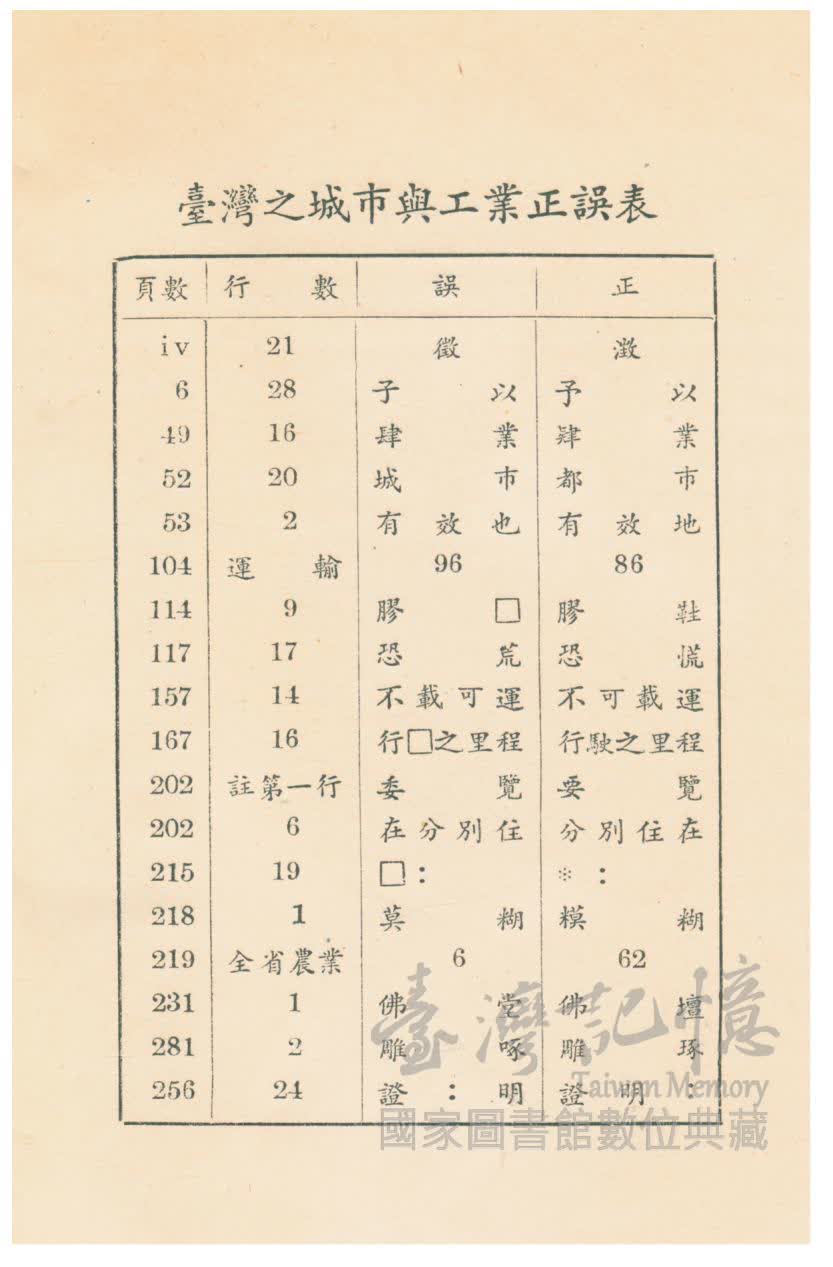 臺灣之城市與工業正誤表
頁數 行數 誤 正
iv 21 徵 澂
6 28 子以 予以
49 16 肆業 肄業
52 20 城市 都市
53 2 有效也 有效地
104 運輸 96 86
114 9 膠□ 膠鞋
117 17 恐荒 恐慌
157 14 不載可運 不可載運
167 16 行□之里程 行駛之里程
202 註第一行 委覽 要覽
202 6 在分別住 分別住在
215 19 □: ※:
218 1 莫糊 糢糊
219 全省農業 6 62
231 1 佛堂 佛壇
281 2 雕啄 雕琢
256 24 證:明 證明:
臺灣記憶
Taiwan Memory
國家圖書館數位典藏